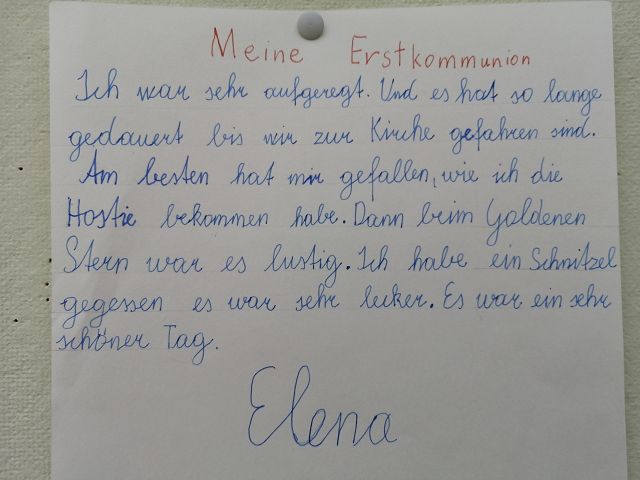 Meine Erstkommunion
Ich war sehr aufgeregt. Und es hat so lange
gedauert bis wir zur Kirche gefahren sind.
Am besten hat mir gefallen, wie ich die
Hostie bekommen habe. Dann beim Goldenen
Stern war es lustig. Ich habe ein Schnitzel
gegessen es war sehr lecker. Es war ein sehr
schöner Tag.
Elena